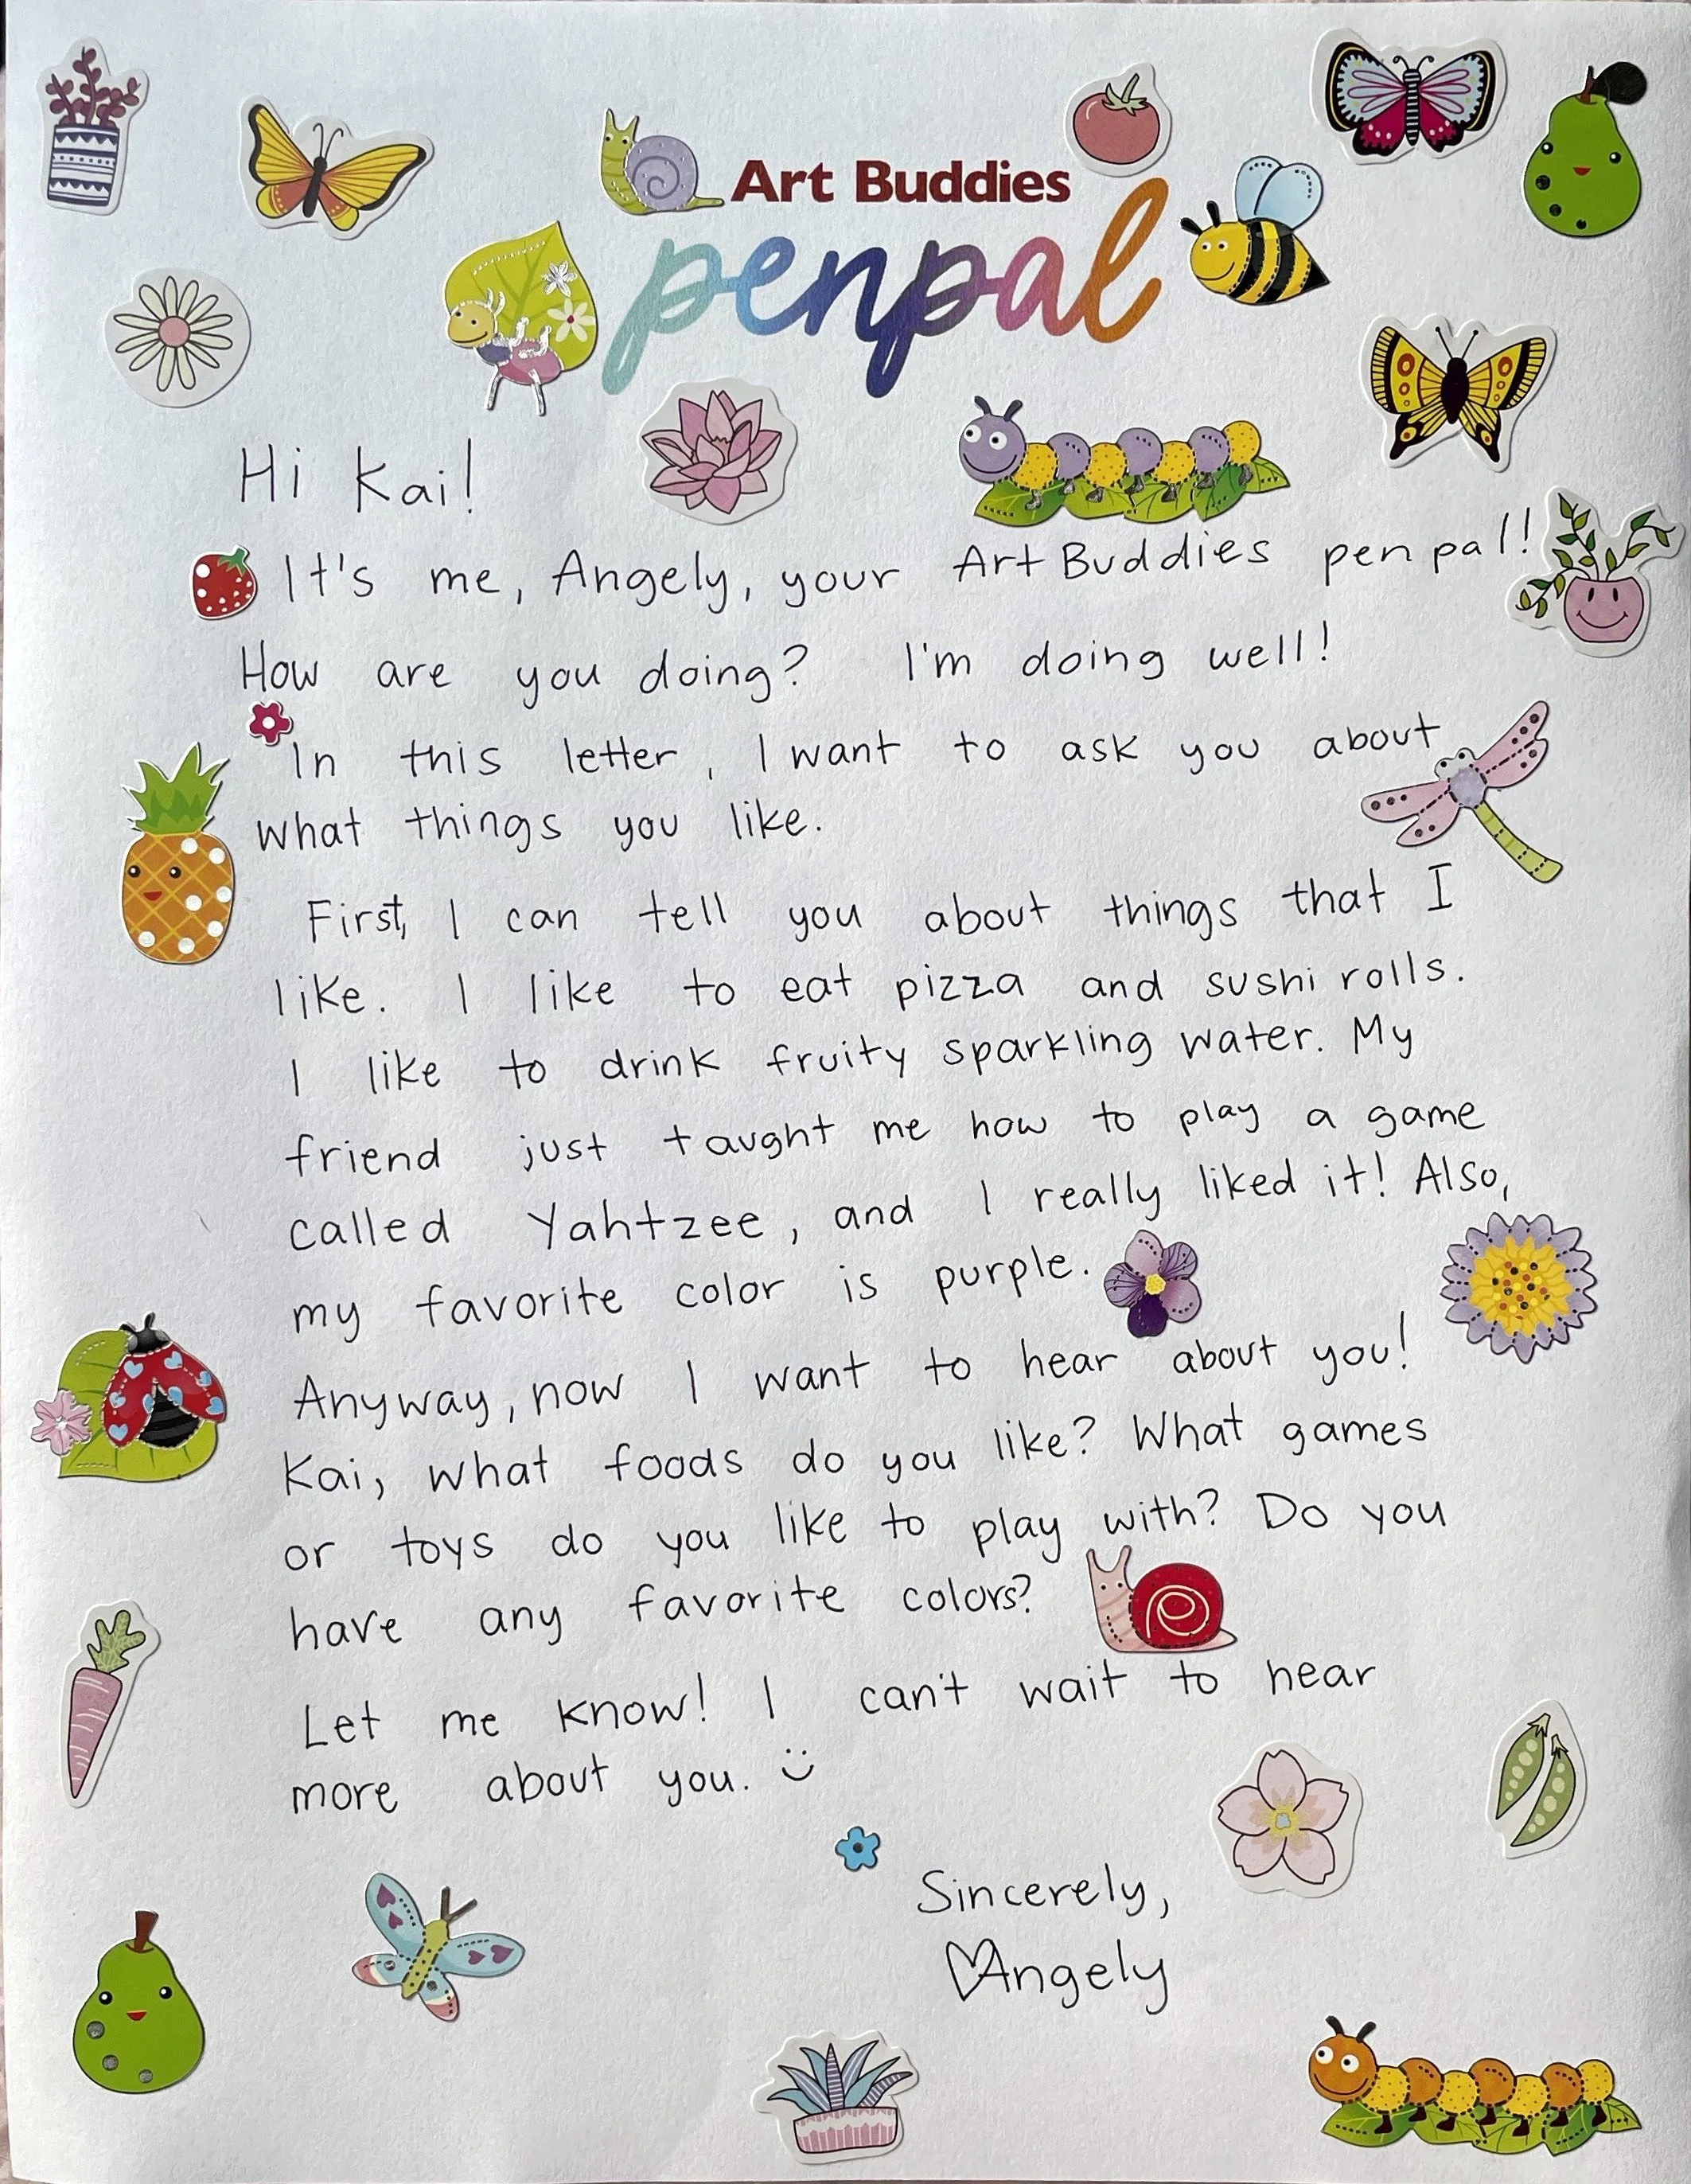 Art Buddies
penpal
Hi Kai!
It's me, Angely, your Art Buddies pen pal!
How are you doing? I'm doing well!
In this letter, I want to ask you about
what things you like.
First, I can tell you about things that I
like. I like to eat pizza and sushi rolls.
I like to drink fruity sparkling water. My
friend just taught me how to play a game
called Yahtzee, and I really liked it! Also,
my favorite color is purple.
Anyway, now I want to hear about you!
Kai, what foods do you like? What games
or toys do you like to play with? Do you
have any favorite colors?
Let me know! I can't wait to hear
more about you. :)
Sincerely,
♡Angely